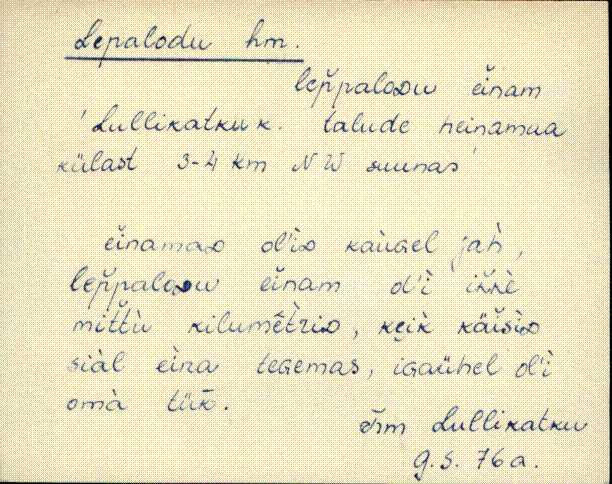 Lepalodu hm.
lep̆paloᴅu ĕinam
'Lullikatku k. talude heinamaa
külast 3-4 km NW suunas'
ĕinamaᴅ ol'iᴅ kaùɢel jàh,
lep̆paloᴅu ĕinam ol'ì ik̆kè
mit̆tù kilumȇtriᴅ, keik käìsiᴅ
siàl eìna teɢemas, iɢaühel ol'ì
omà tük̆.
Trm Lullikatku
G.S. 76a.